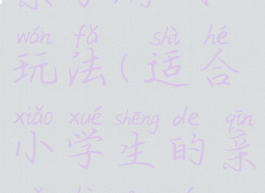 wán fǎ shì hé
玩法（适合
xiǎo xué shēng de qīn
小学生的亲